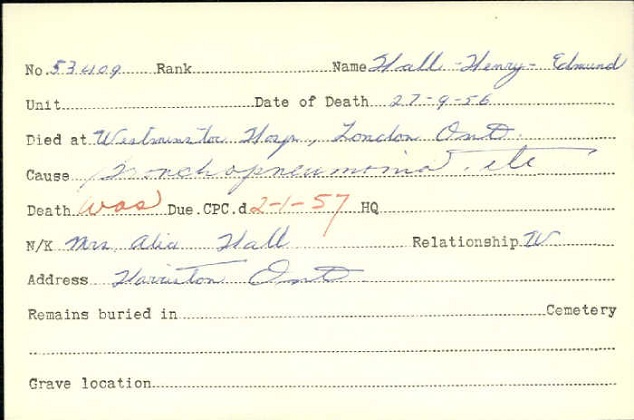 No. 53409 Rank Name Hall - Henry - Edmund
Unit Date of Death 27-9-56
Died at Westminster Hosp, London Ont.
Cause Bronchopneumonia. etc
Death was Due. CPC.d 2-1-57 HQ
N/K Mrs. Alia Hall Relationship W
Address Harriston Ont
Remains buried in Cemetery
Grave location